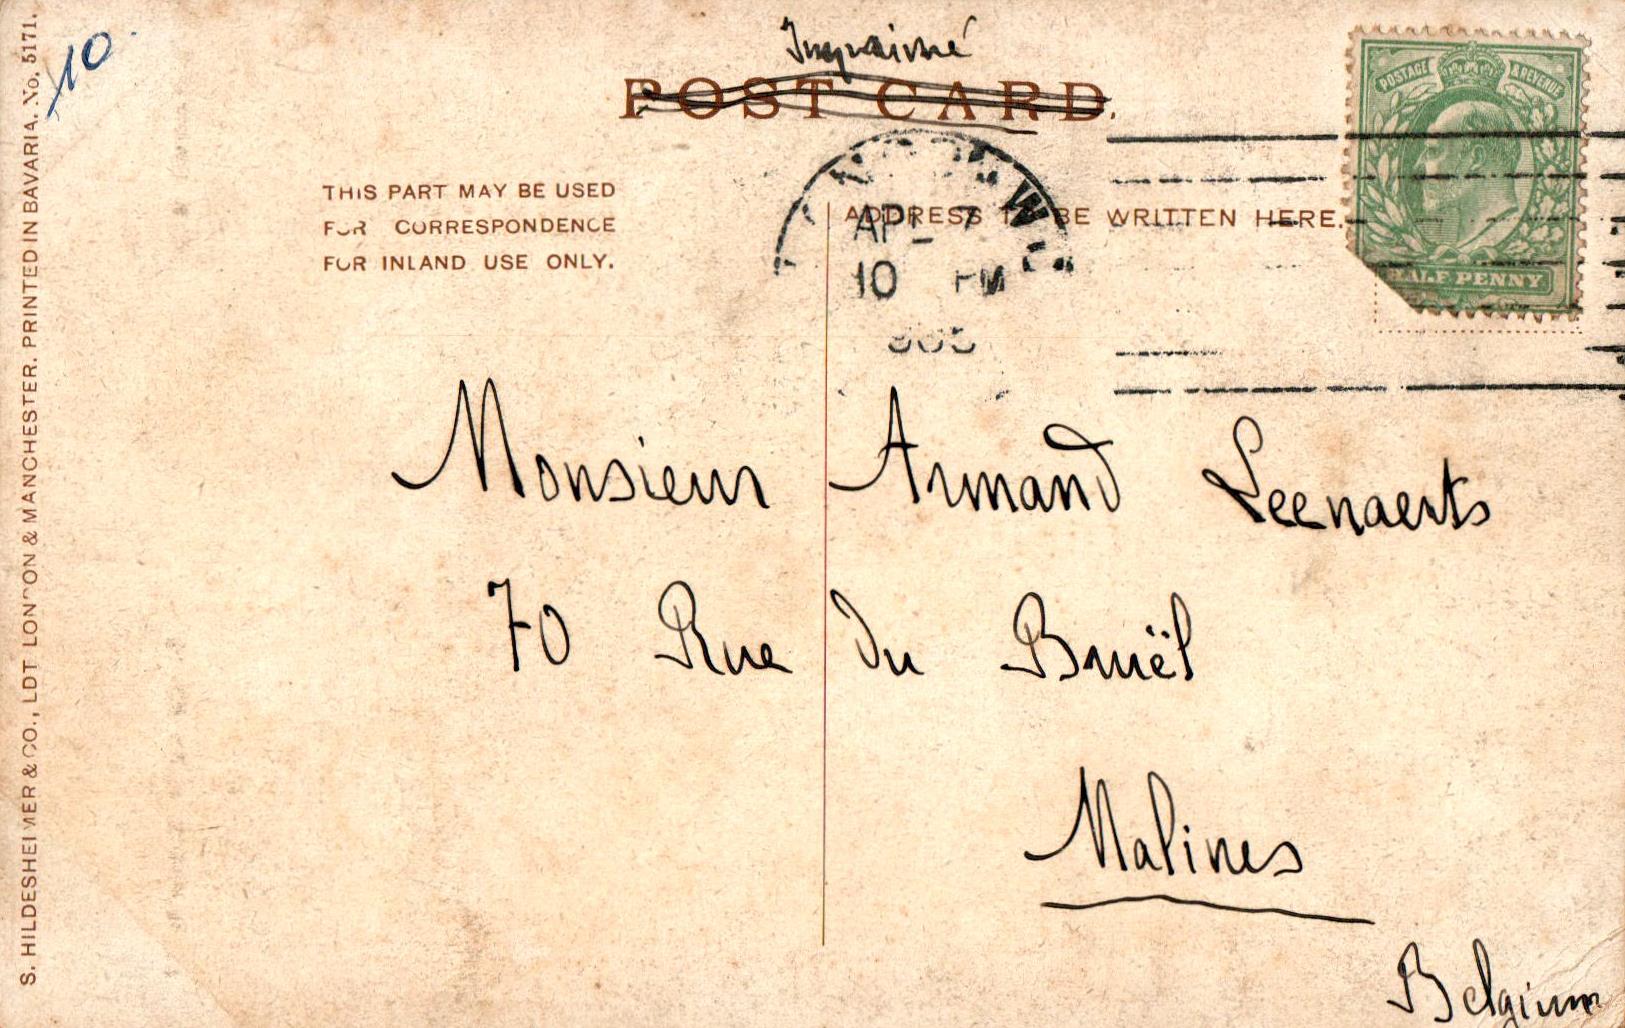 10.
Imprimé
POST CARD.
POSTAGE & REVENUE
THIS PART MAY BE USED
FOR CORRESPONDENCE
FOR INLAND USE ONLY.
ADDRESS TO BE WRITTEN HERE.
W
AP 7
10 PM
905
HALF PENNY
Monsieur Armand Leenaerts
70 Rue du Bruël
Malines
Belgium
S. HILDESHEIMER & CO., LDT LONDON & MANCHESTER. PRINTED IN BAVARIA. No. 5171.